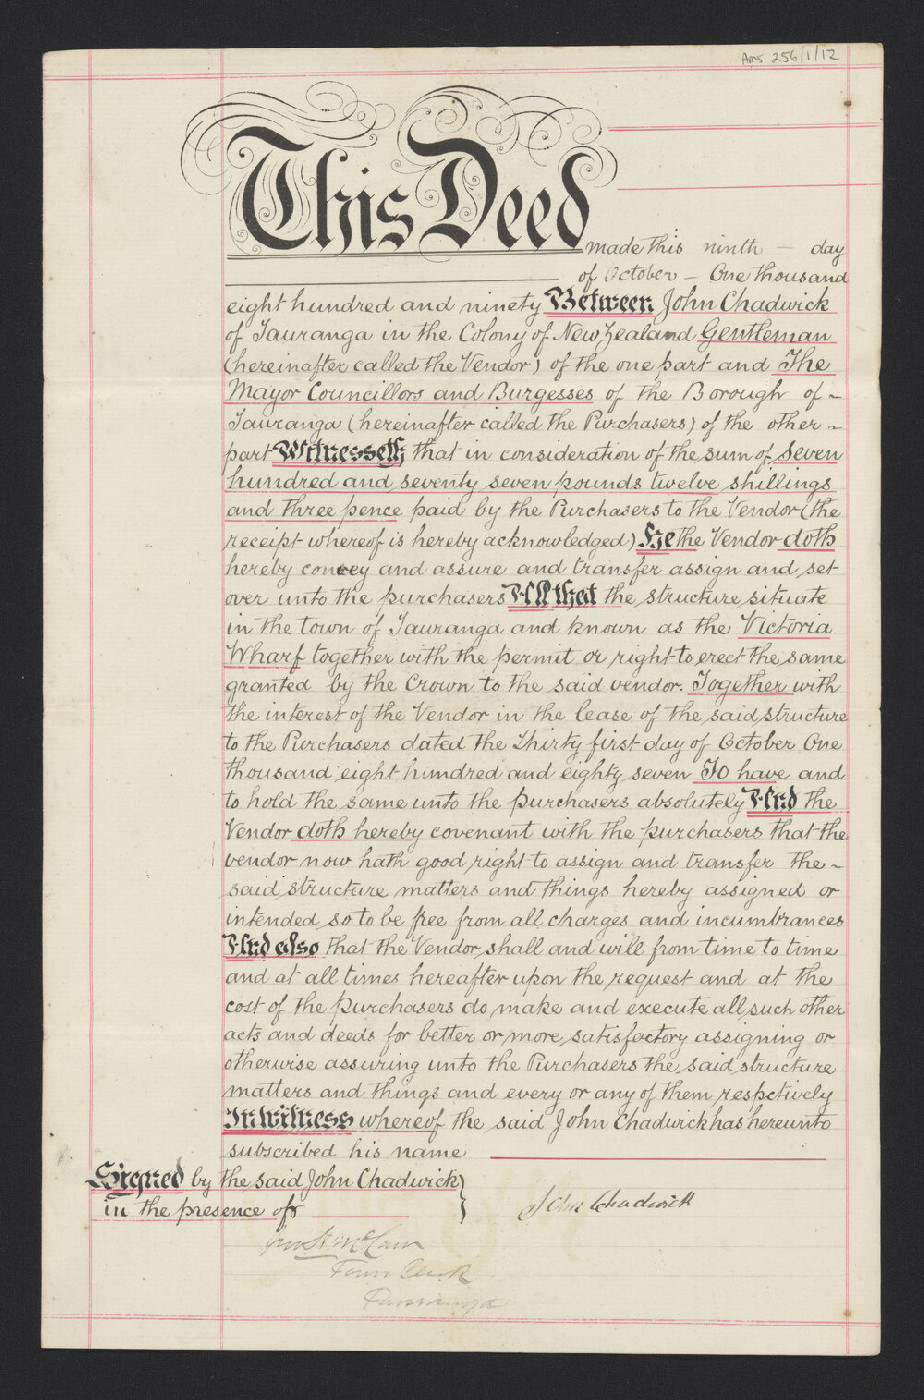 Ams 256/1/12
This Deed
made this ninth — day
of October — One thousand
eight hundred and ninety Between John Chadwick
of Tauranga in the Colony of New Zealand Gentleman
(hereinafter called the Vendor) of the one part and The
Mayor Councillors and Burgesses of the Borough of -
Tauranga (hereinafter called the Purchasers) of the other -
part Witnesseth that in consideration of the sum of Seven
hundred and seventy seven pounds twelve shillings
and three pence paid by the Purchasers to the Vendor (the
receipt whereof is hereby acknowledged) He the Vendor doth
hereby convey and assure and transfer assign and set
over unto the purchasers All that the structure situate
in the town of Tauranga and known as the Victoria
Wharf together with the permit or right to erect the same
granted by the Crown to the said vendor. Together with
the interest of the Vendor in the lease of the said structure
to the Purchasers dated the Thirty first day of October One
thousand eight hundred and eighty seven To have and
to hold the same unto the purchasers absolutely And the
Vendor doth hereby covenant with the purchasers that the
vendor now hath good right to assign and transfer the -
said structure matters and things hereby assigned or
intended so to be free from all charges and incumbrances
And also that the Vendor shall and will from time to time
and at all times hereafter upon the request and at the
cost of the purchasers do make and execute all such other
acts and deeds for better or more satisfactory assigning or
otherwise assuring unto the Purchasers the said structure
matters and things and every or any of them respctively
In Witness whereof the said John Chadwick has hereunto
subscribed his name
Signed by the said John Chadwick }
in the presence of
John Chadwick
McCaw
Town Clerk
Tauranga